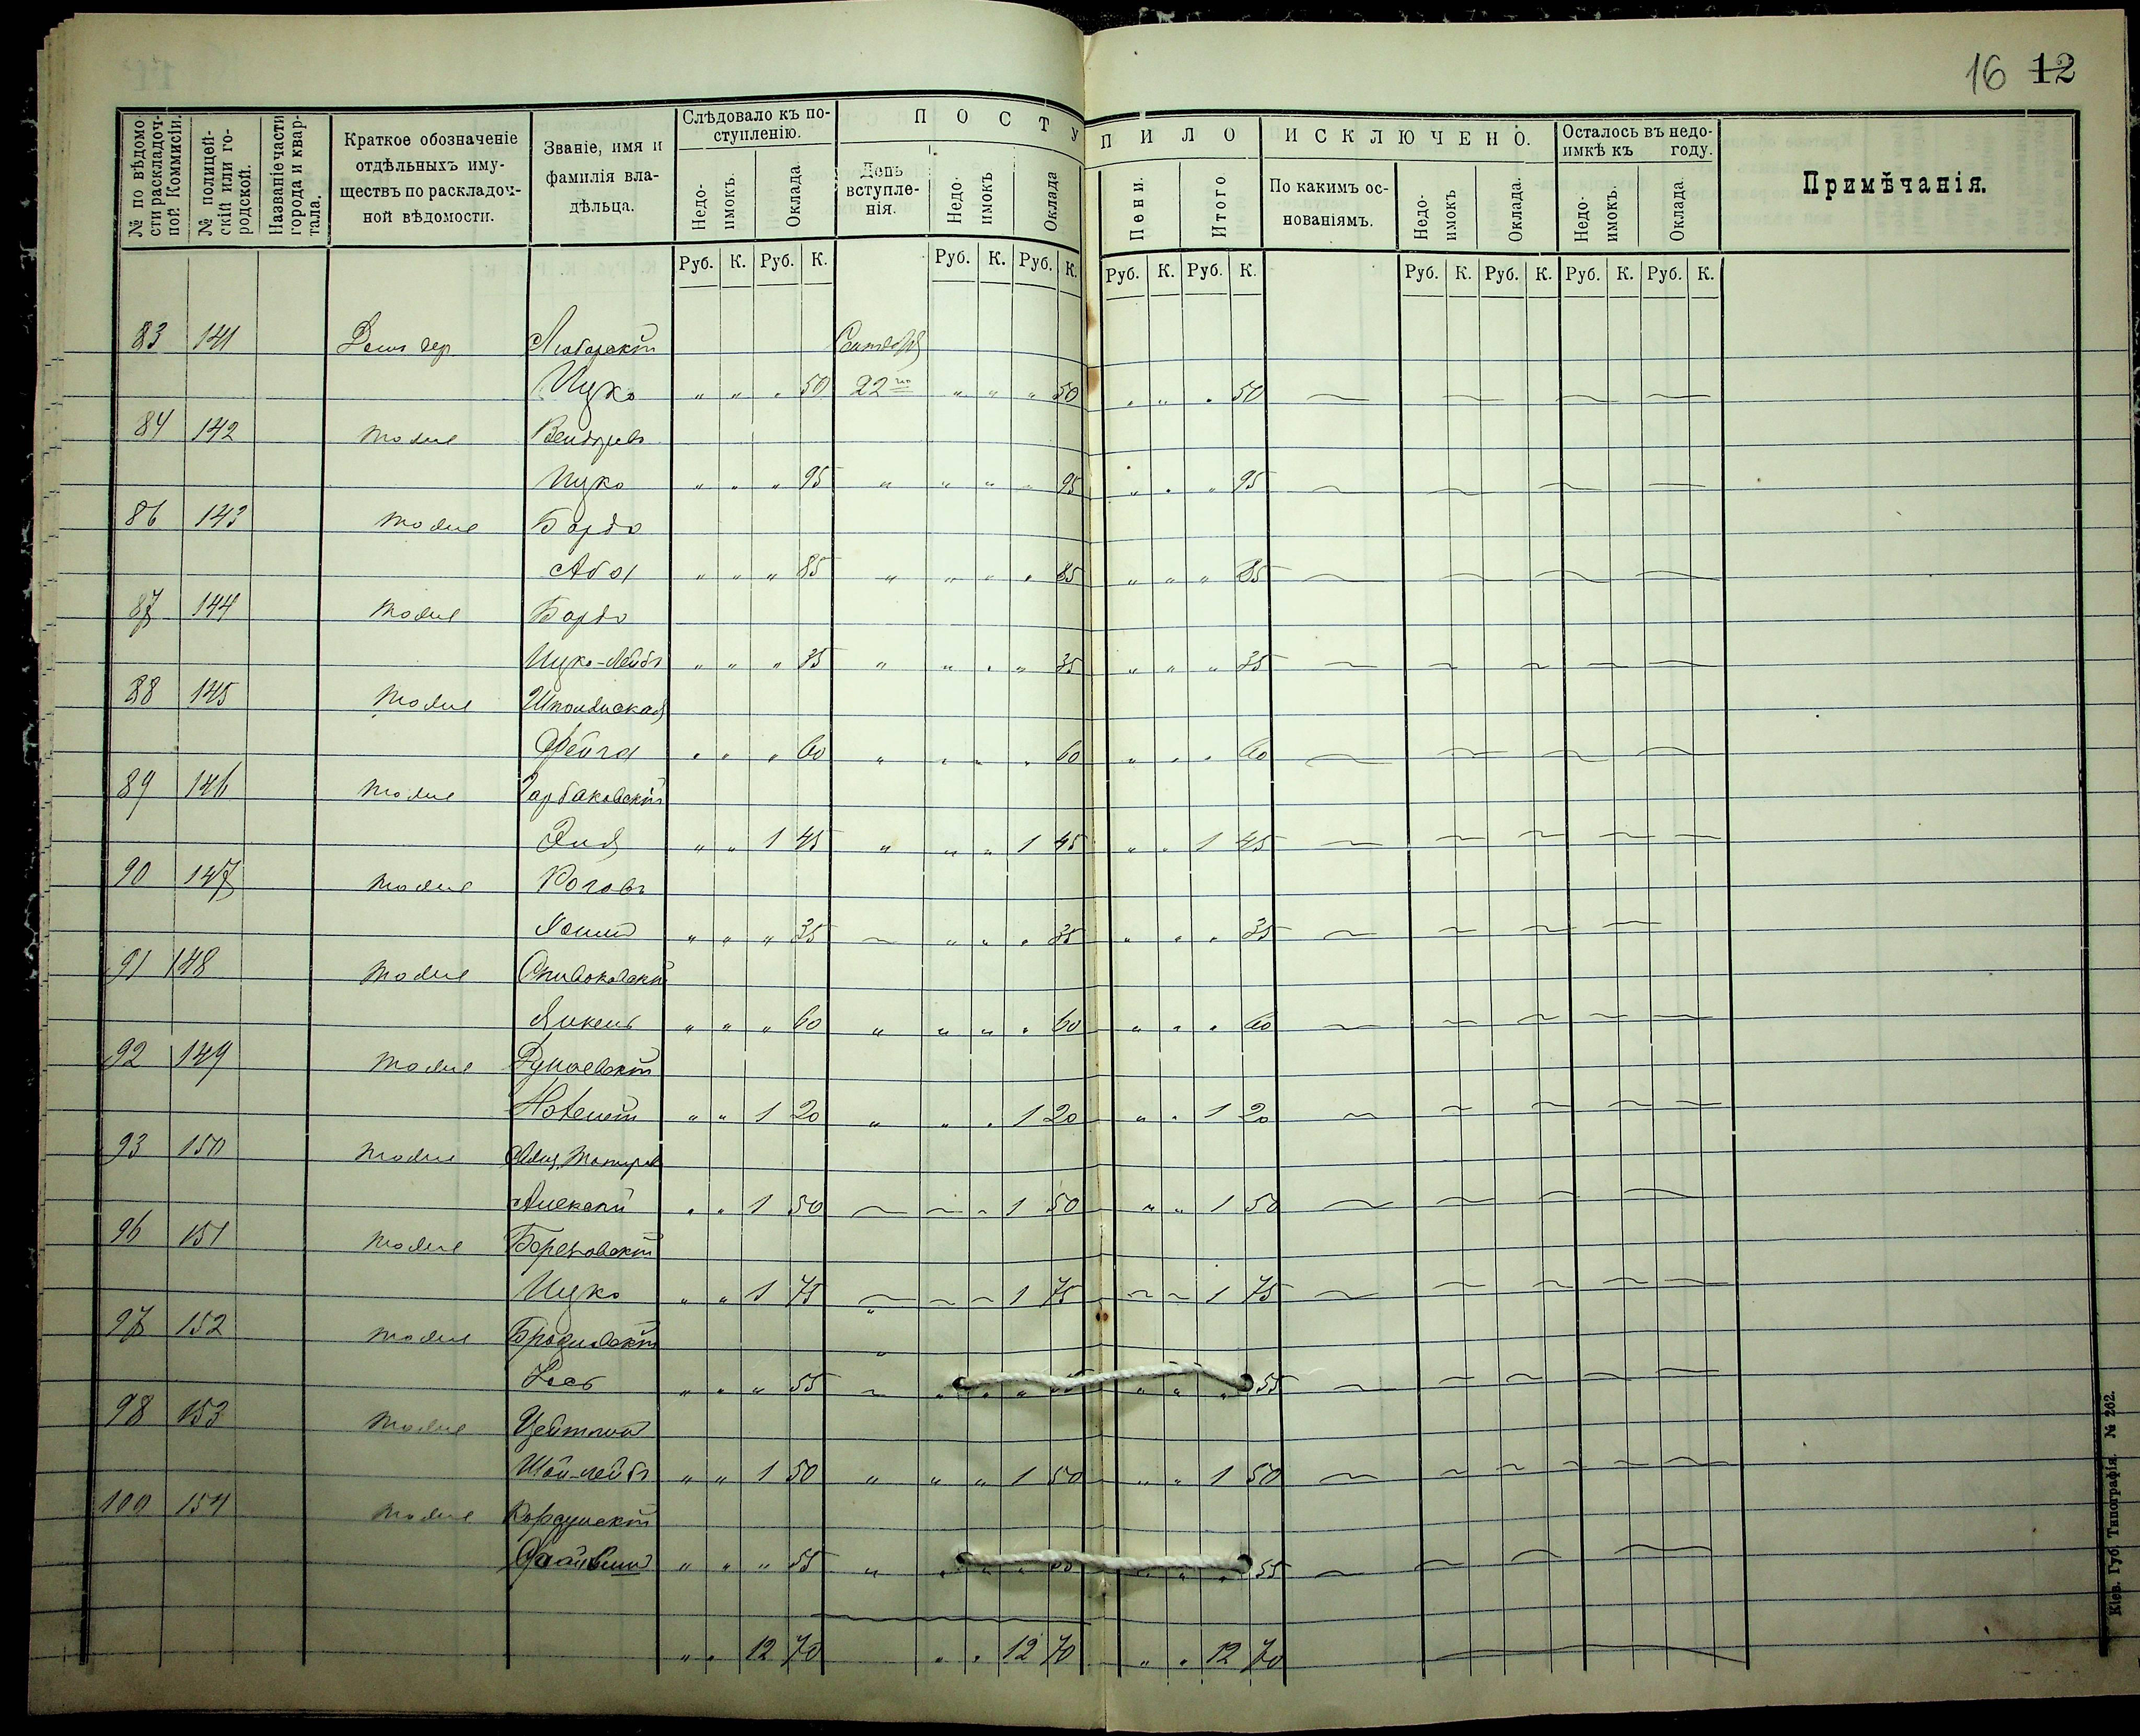 16 12
№ по вѣдомости раскладочной Коммисіи.
№ полицейскій или городской.
Названіе части города и квартала.
Краткое обозначеніе отдѣльныхъ имуществъ по раскладочной вѣдомости.
Званіе, имя и фамилія владѣльца.
Слѣдовало къ поступленію.
Недоимокъ. Оклада.
ПОСТУПИЛО
День вступленія. Недоимокъ Оклада Пени. Итого
ИСКЛЮЧЕНО.
По какимъ основаніямъ. Недоимокъ Оклада.
Осталось въ недоимкѣ къ году.
Недоимокъ. Оклада.
Примѣчанія.
Руб. К. Руб. К. Руб. К. Руб. К. Руб. К. Руб. К. Руб. К. Руб. К. Руб. К. Руб. К.
83 141 Любарскій Сентября
Ицко " " " 50 22го " " " 50 " " " 50
84 142 тоже
Ицко " " " 95 " " " " 95 " " " 95
86 143 тоже Бардо
Аба " " " 85 " " " " 85 " " " 85
87 144 тоже Бардо
Ицко-Лейбъ " " " 35 " " " " 35 " " " 35
88 145 тоже Шполянская
Фейга " " " 60 " " " " 60 " " " 60
89 146 тоже Гарбаковскій
" " 1 45 " " " 1 45 " " 1 45
90 147 тоже Коганъ
" " " 35 " " " 35 " " " 35
91 148 тоже
Янкель " " " 60 " " " " 60 " " " 60
92 149 тоже
" " 1 20 " " " 1 20 " " 1 20
93 150 тоже
Алексѣй " " 1 50 " 1 50 " " 1 50
96 151 тоже
Ицко " " 1 75 " 1 75 1 75
97 152 тоже
" " " 55 " " " 55 " " " 55
98 153 тоже
" " 1 50 " " " 1 50 " " 1 50
100 154 тоже Корсунскій
" " " 55 " " " " 55 " " " 55
" " 12 70 " " 12 70 " " 12 70
Кіев. Губ. Типографія. № 262.